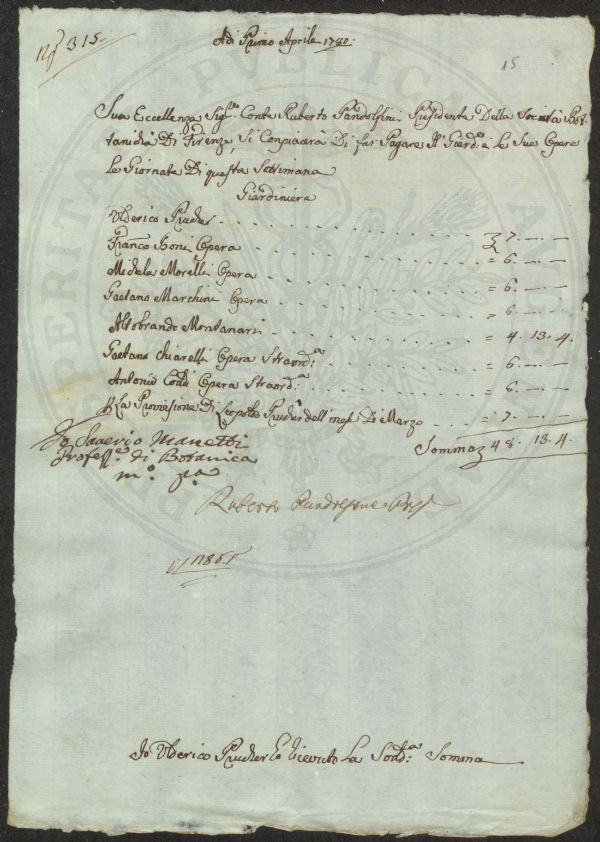 N° 315.
Adi Primo Aprile 1780:
15
Sua Eccellenza Sig:re Conte Ruberto Pandolfini Presidente Della Società Bot-
tanicha Di Firenze Si Conpiacerà Di far Pagare Il Giard:e e le Sue Opere
Le Giornate Di questa Settimana
Giardiniere
Ulderico Prucker - . . . . . . . . £ 7. — . —
Franco Boni Opera . . . . . . . . = 6. — . —
Michele Morelli Opera . . . . . . . = 6. — . —
Gaetano Marchini Opera . . . . . . . = 6. — . —
Altobrando Montanari . . . . . . . = 4. 13. 4.
Gaetano Chiarelli Opera Straord:a . . . . . = 6. — . —
Antonio Codi Opera Straord:a . . . . . = 6. — . —
La Provisione Di Leopoldo Prucker dell mese Di Marzo . . = 7. — . —
Somma £ 48. 13. 4.
Io Saverio Manetti
Profess:e di Botanica
m:o p:a
Roberto Pandolfini Pres:
Io Ulderico Prucker ho ricevuto La Sodd:a Somma